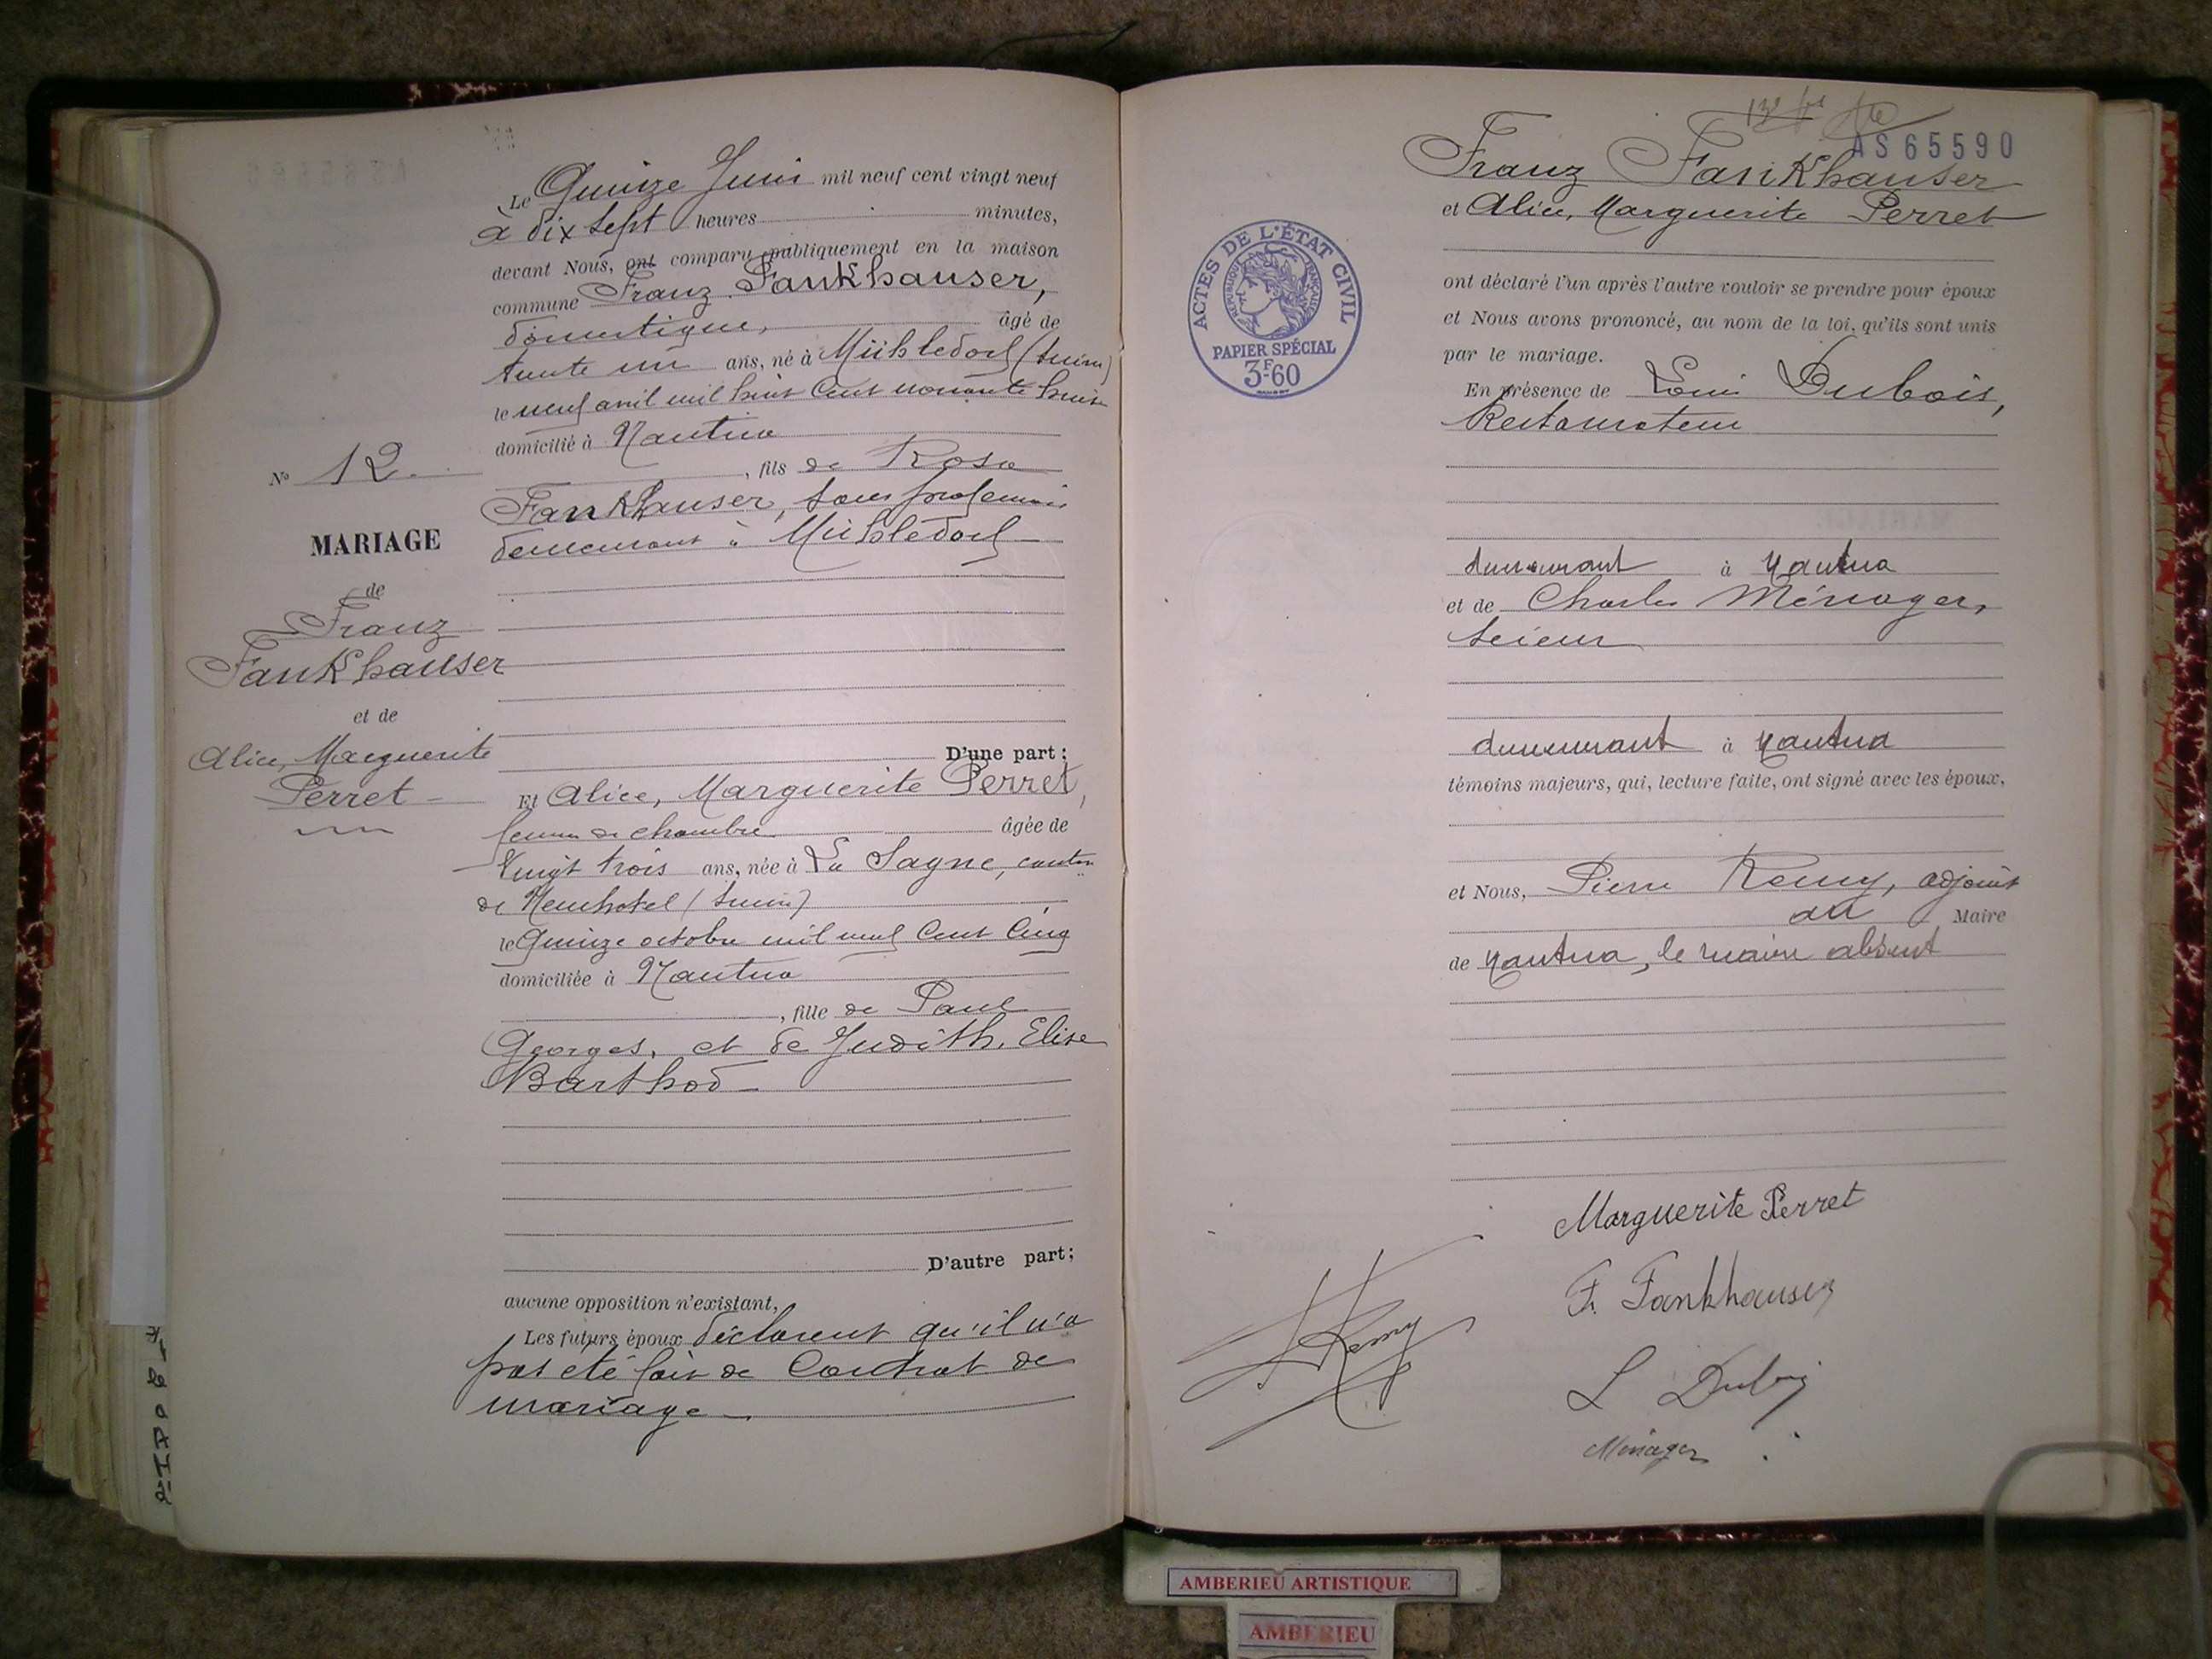 Le Quinze Juin mil neuf cent vingt neuf
à dix sept heures minutes,
devant Nous, ont comparu publiquement en la maison
commune Franz Fankhauser,
domestique, âgé de
trente un ans, né à Mühledorf (Suisse)
le neuf avril mil huit cent nonante huit
domicilié à Nantua
, fils de Rosa
Fankhauser, sans profession
demeurant à Mühledorf
No 12.
MARIAGE
de
Franz
Fankhauser
et de
Alice, Marguerite
Perret
D'une part:
Et Alice, Marguerite Perret,
femme de chambre âgée de
vingt trois ans, née à La Sagne, canton
de Neuchatel (Suisse)
le Quinze octobre mil neuf cent cinq
domiciliée à Nantua
, fille de Paul
Georges, et de Judith, Elise
Barthod
D'autre part;
aucune opposition n'existant,
Les futurs époux déclarent qu'il n'a
pas été fait de Contrat de
mariage
AS65590
Franz Fankhauser
et Alice, Marguerite Perret
ont déclaré l'un après l'autre vouloir se prendre pour époux
et Nous avons prononcé, au nom de la loi, qu'ils sont unis
par le mariage.
En présence de Louis Dubois,
Restaurateur
demeurant à Nantua
et de Charles Ménager,
scieur
demeurant à Nantua
témoins majeurs, qui, lecture faite, ont signé avec les époux,
et Nous, Pierre Remy, adjoint
au Maire
de Nantua, le maire absent
Marguerite Perret
F. Fankhauser
Remy
L Dubois
Ménager
ACTES DE L'ÉTAT CIVIL
RÉPUBLIQUE FRANÇAISE
PAPIER SPÉCIAL
3F60
AMBERIEU ARTISTIQUE
AMBERIEU